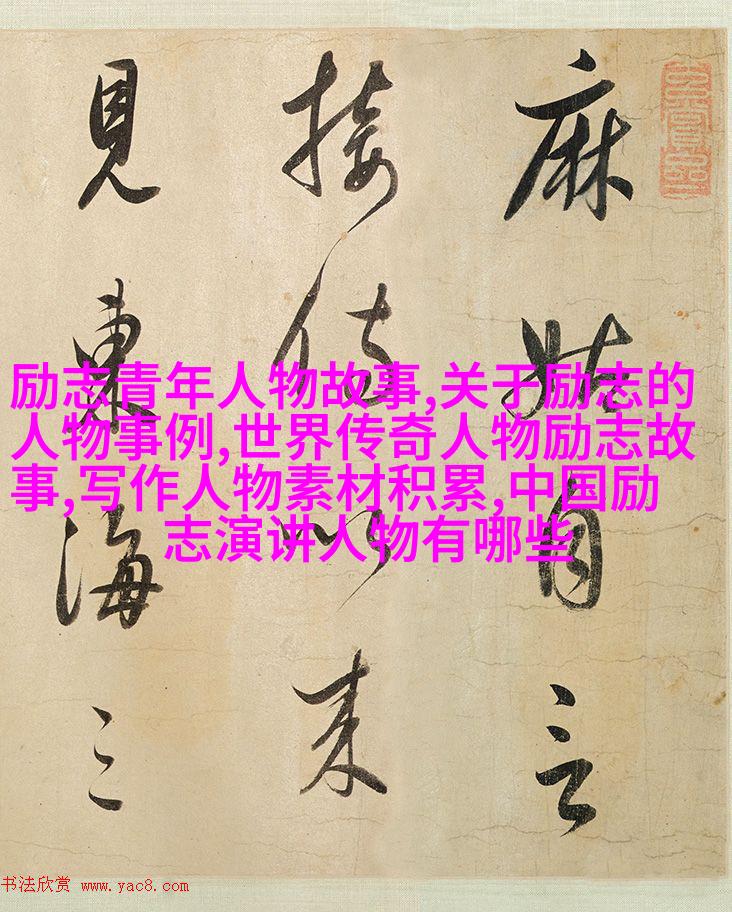 麻姑自言
接侍以来
見東海三
励志青年人物故事,关于励志的
人物事例,世界传奇人物励志故
事,写作人物素材积累,中国励
志演讲人物有哪些
书法欣赏 www.yac8.com